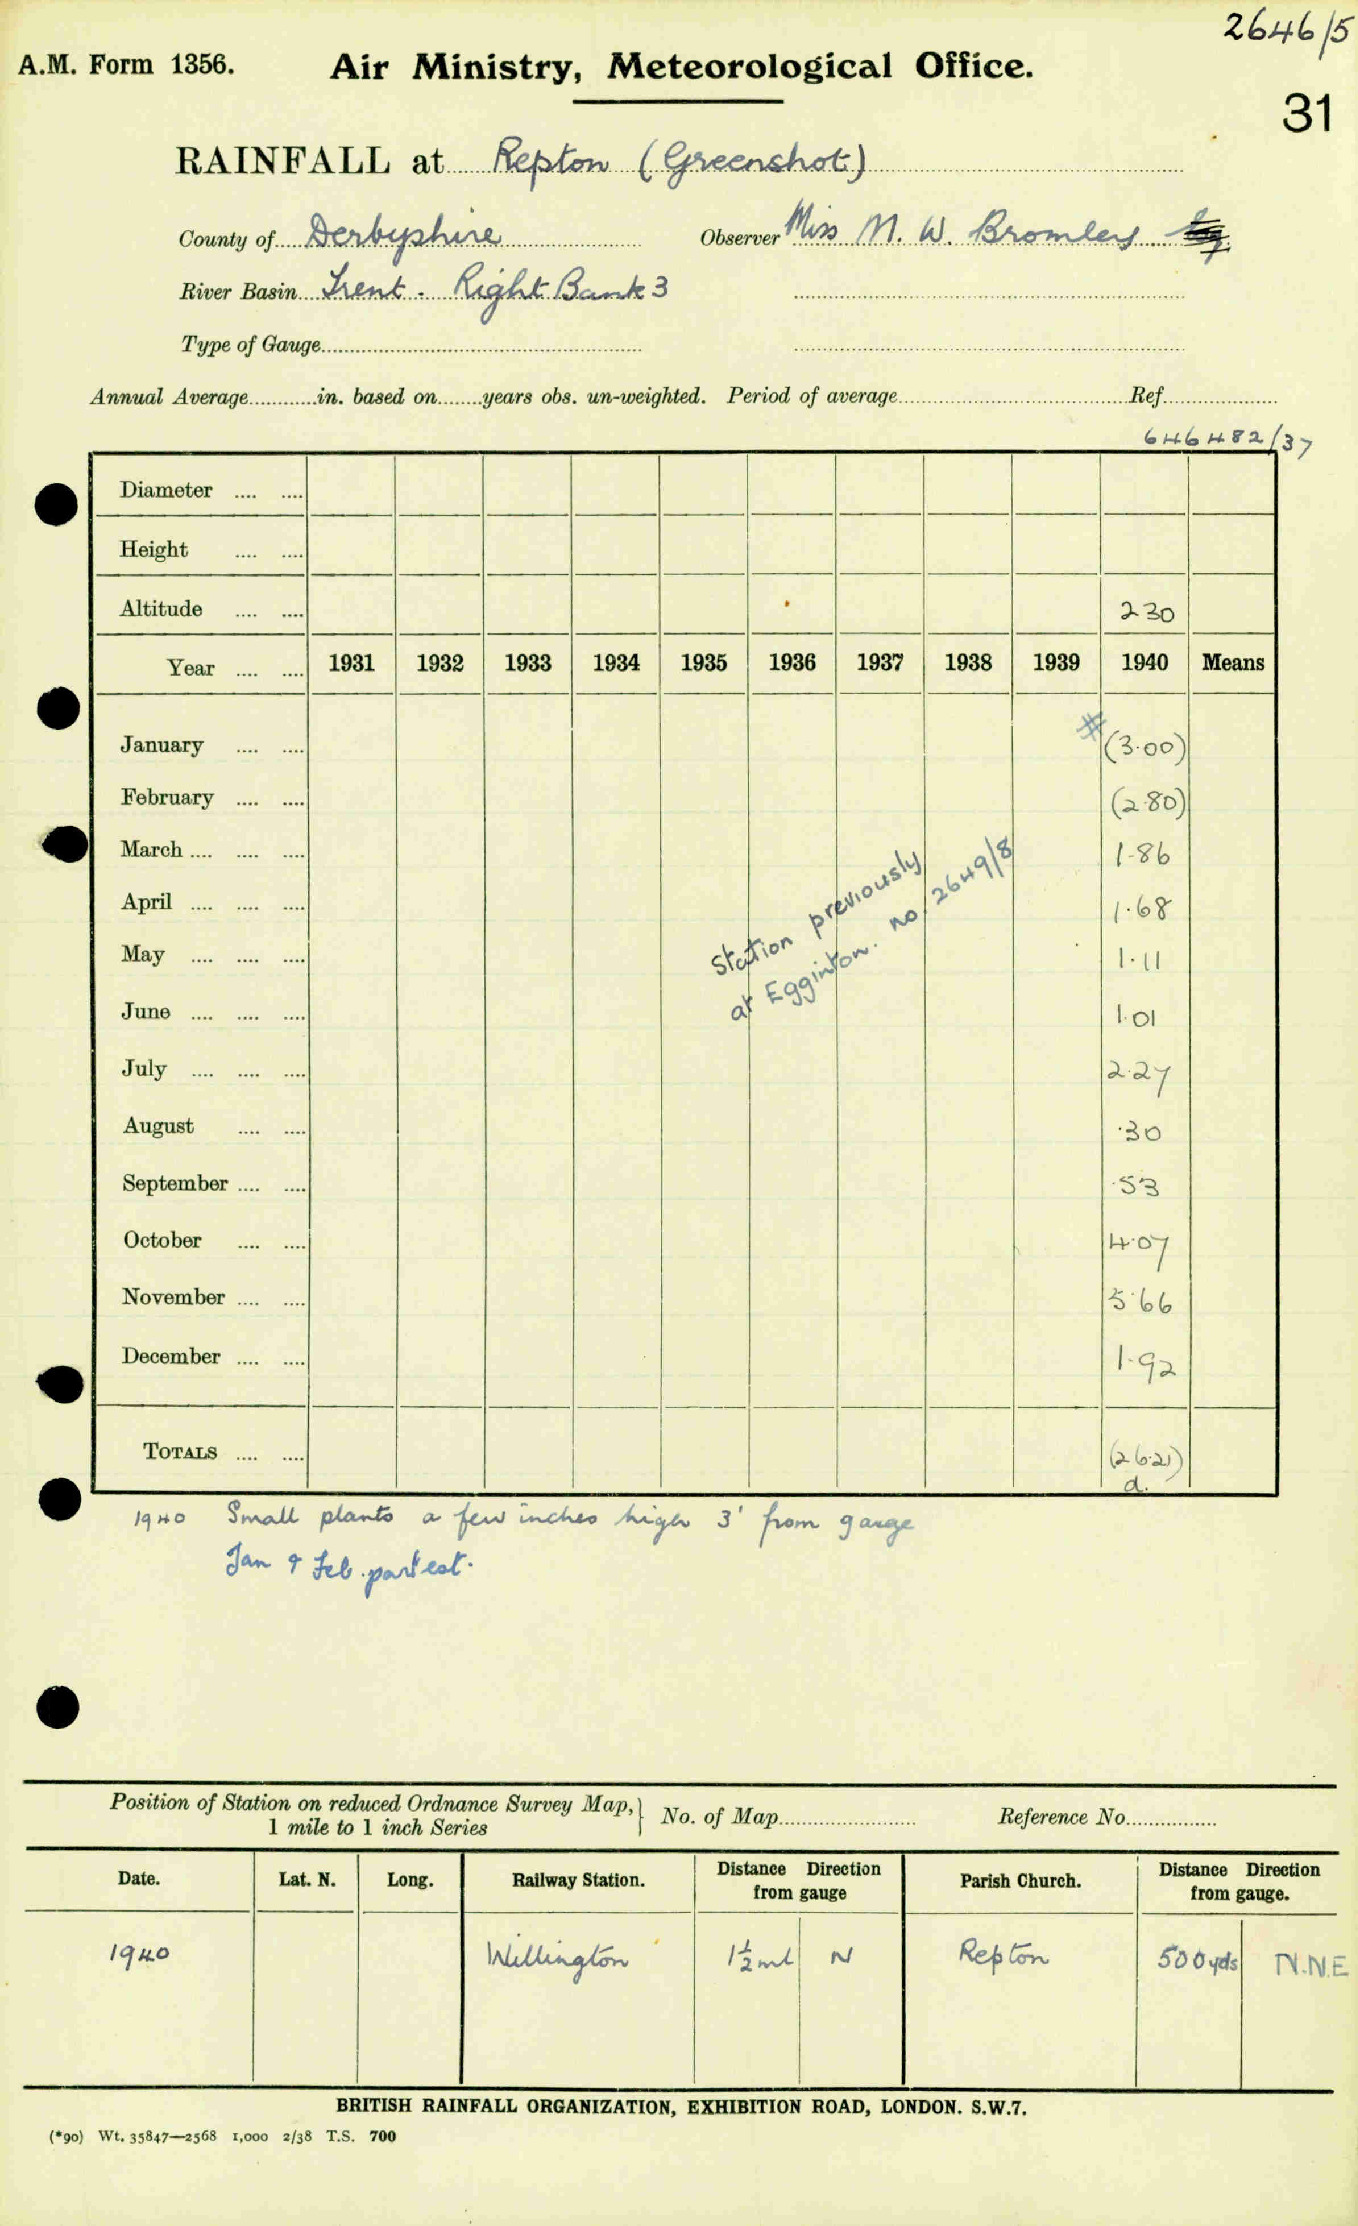 2646/5
A.M. Form 1356. Air Ministry, Meteorological Office.
31
RAINFALL at Repton (Greenshot)
County of Derbyshire Observer Miss M. W. Bromley
River Basin Trent - Right Bank 3
Type of Gauge
Annual Average in. based on years obs. un-weighted. Period of average Ref.
646482/37
Diameter
Height
Altitude 230
Year 1931 1932 1933 1934 1935 1936 1937 1938 1939 1940 Means
January # (3.00)
February (2.80)
March 1.86
April 1.68
May 1.11
June 1.01
July 2.27
August .30
September .53
October 4.07
November 5.66
December 1.92
Station previously
at Egginton. no. 2649/8
TOTALS (26.21)
d.
1940 Small plants a few inches high 3' from gauge
Jan & Feb. part est.
Position of Station on reduced Ordnance Survey Map, } No. of Map Reference No.
1 mile to 1 inch Series
Date. Lat. N. Long. Railway Station. Distance Direction from gauge Parish Church. Distance Direction from gauge.
1940 Willington 1½ ml N Repton 500 yds N.N.E
BRITISH RAINFALL ORGANIZATION, EXHIBITION ROAD, LONDON. S.W.7.
(*90) Wt. 35847—2568 1,000 2/38 T.S. 700